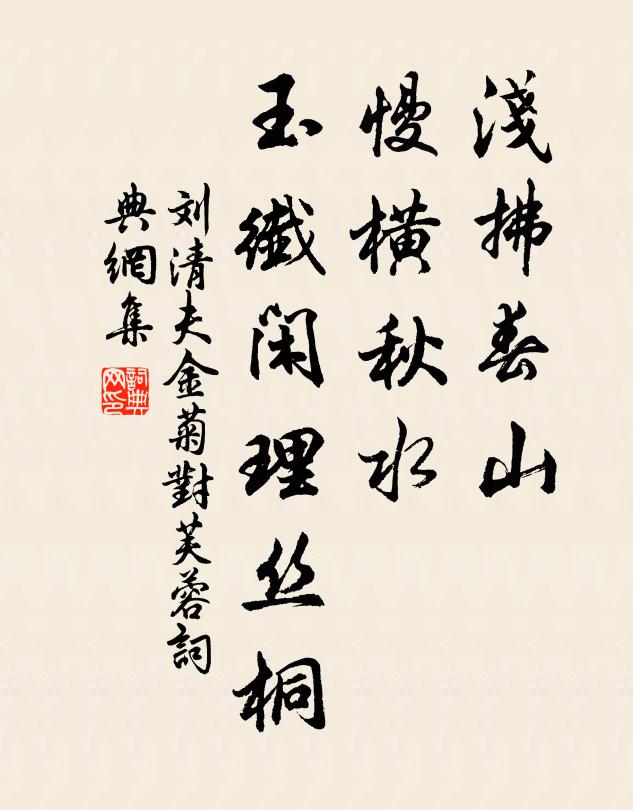 淺拂春山
慢橫秋水
玉纖閑理丝桐
刘清夫金菊對芙蓉詞
典網集
詞典
网印